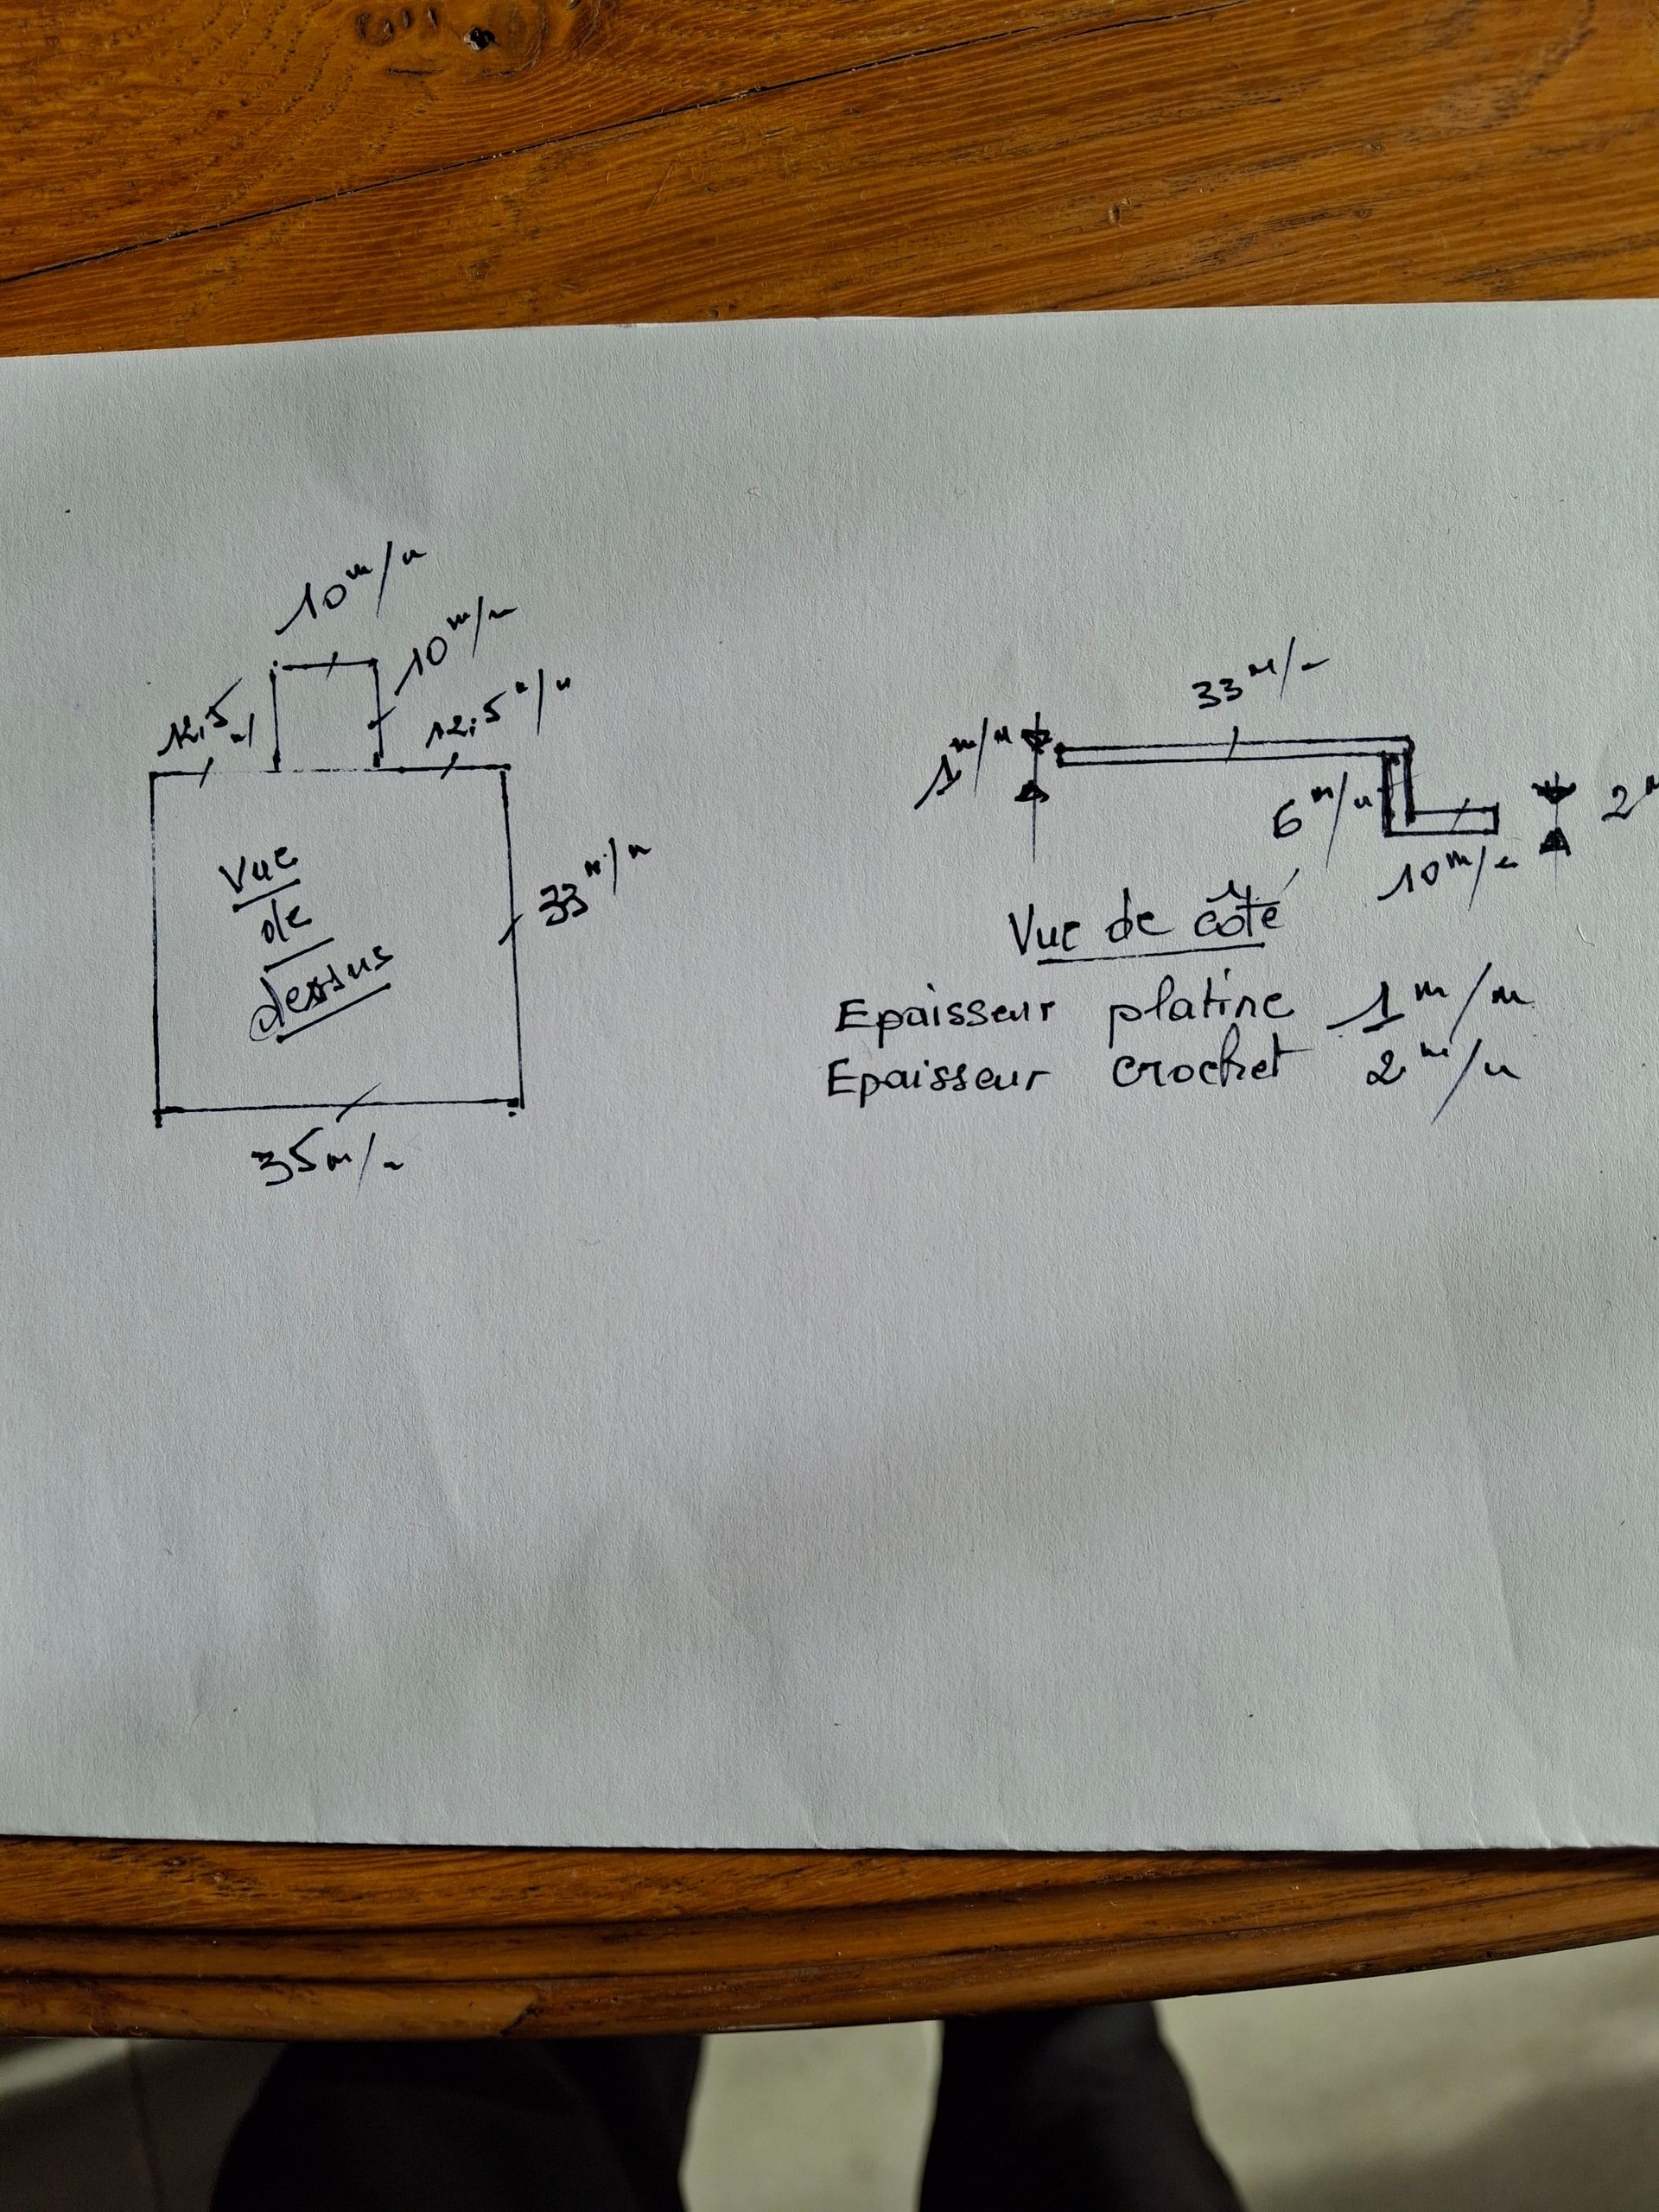 10 m/m
10 m/m
12,5 m/
12,5 m/m
Vue
de
dessus
33 m/m
35 m/m
33 m/m
1 m/m
6 m/m
2 m
10 m/m
Vue de côté
Epaisseur platine 1 m/m
Epaisseur crochet 2 m/m